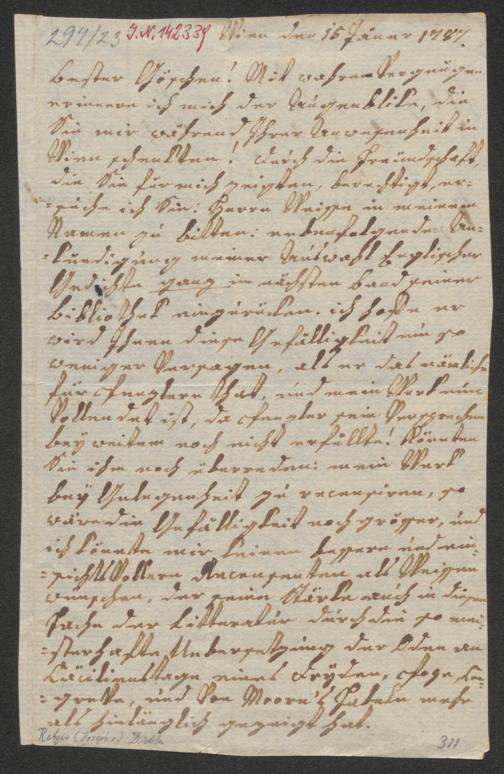 297/23 I.N. 142339 Wien den 15 Jäner 1787.
bester Göschen! Mit wahrem Vergnügen
erinnere ich mich der Augenblike, die
Sie mir während Ihrer Anwesenheit in
Wien schenkten! durch die Freundschaft
die Sie für mich zeigten, berechtigt, er-
=suche ich Sie: Herrn Weisse in meinem
Namen zu bitten: nebenfolgende An-
=kündigung meiner Auswahl Englischer
Gedichte ganz im nächsten band seiner
bibliothek einzurücken. ich hoffe er
wird Ihnen diese Gefälligkeit um so
weniger Versagen, als er das nämliche
für that, und mein Werk nun
Vollendet ist, da sein Versprechen
bey weitem noch nicht erfüllte! Könnten
Sie ihn noch überreden: mein Werk
bey Gelegenheit zu recensiren, so
wäre die Gefälligkeit noch grösser, und
ich könnte mir keinen bessern und ein-
=sichtsVollern Recensenten als Weissen
wünschen, der seine Stärke auch in diesem
Fache der Litteratur durch die so mei-
=sterhafte Uebersetzung der Oden an
Cäcilienstage eines Dryden, Pope, Con-
=greve, und Von Moore's Fabeln mehr
als hinlänglich gezeigt hat.
311